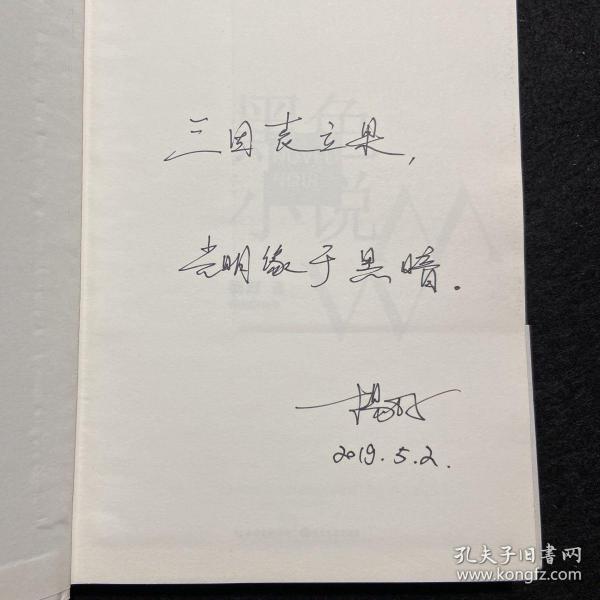 三因表立果，
光明缘于黑暗.
杨好
2019.5.2.
孔夫子旧书网
www.kongfz.com